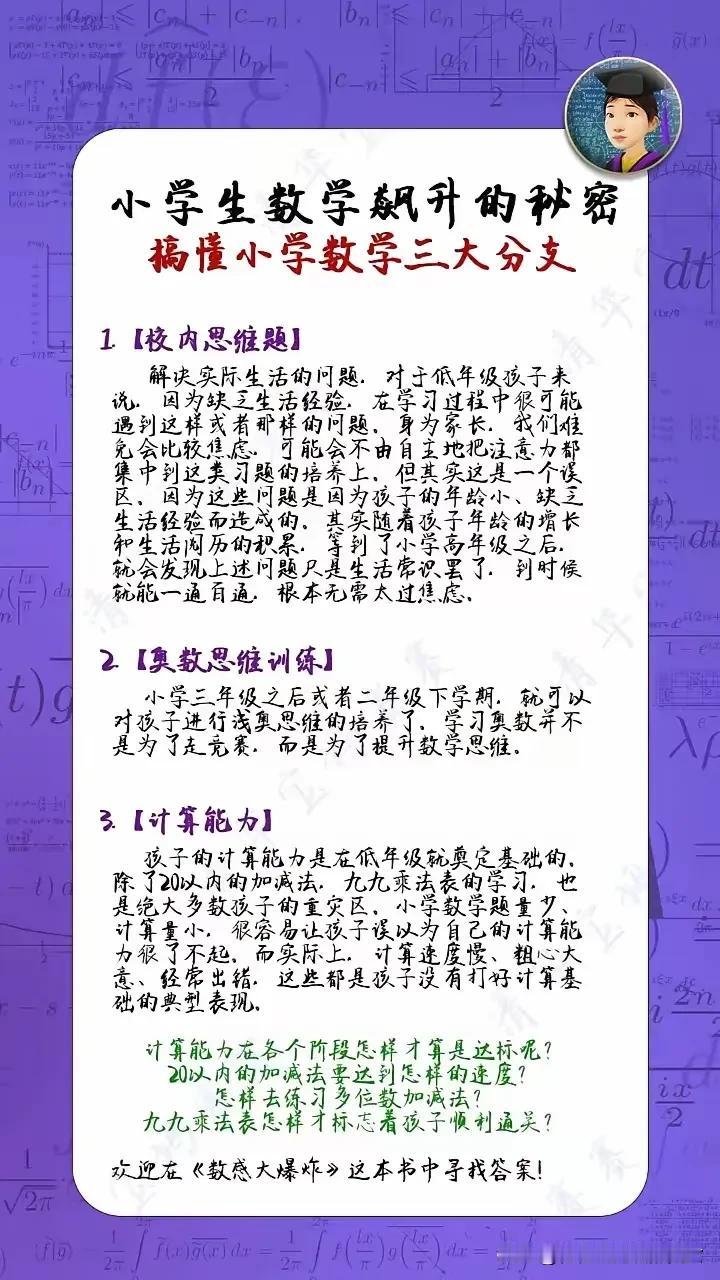 小学生数学飙升的秘密
搞懂小学数学三大分支
1.【校内思维题】
解决实际生活的问题. 对于低年级孩子来
说. 因为缺乏生活经验. 在学习过程中很可能
遇到这样或者那样的问题. 身为家长. 我们难
免会比较焦虑. 可能会不由自主地把注意力都
集中到这类习题的培养上. 但其实这是一个误
区. 因为这些问题是因为孩子的年龄小、缺乏
生活经验而造成的. 其实随着孩子年龄的增长
和生活阅历的积累. 等到了小学高年级之后.
就会发现上述问题只是生活常识罢了. 到时候
就能一通百通. 根本无需太过焦虑.
2.【奥数思维训练】
小学三年级之后或者二年级下学期. 就可以
对孩子进行浅奥思维的培养了. 学习奥数并不
是为了走竞赛. 而是为了提升数学思维.
3.【计算能力】
孩子的计算能力是在低年级就奠定基础的.
除了20以内的加减法. 九九乘法表的学习. 也
是绝大多数孩子的重灾区. 小学数学题量少、
计算量小. 很容易让孩子误以为自己的计算能
力很了不起. 而实际上. 计算速度慢、粗心大
意、经常出错. 这些都是孩子没有打好计算基
础的典型表现.
计算能力在各个阶段怎样才算是达标呢?
20以内的加减法要达到怎样的速度?
怎样去练习多位数加减法?
九九乘法表怎样才标志着孩子顺利通关?
欢迎在《数感大爆炸》这本书中寻找答案!